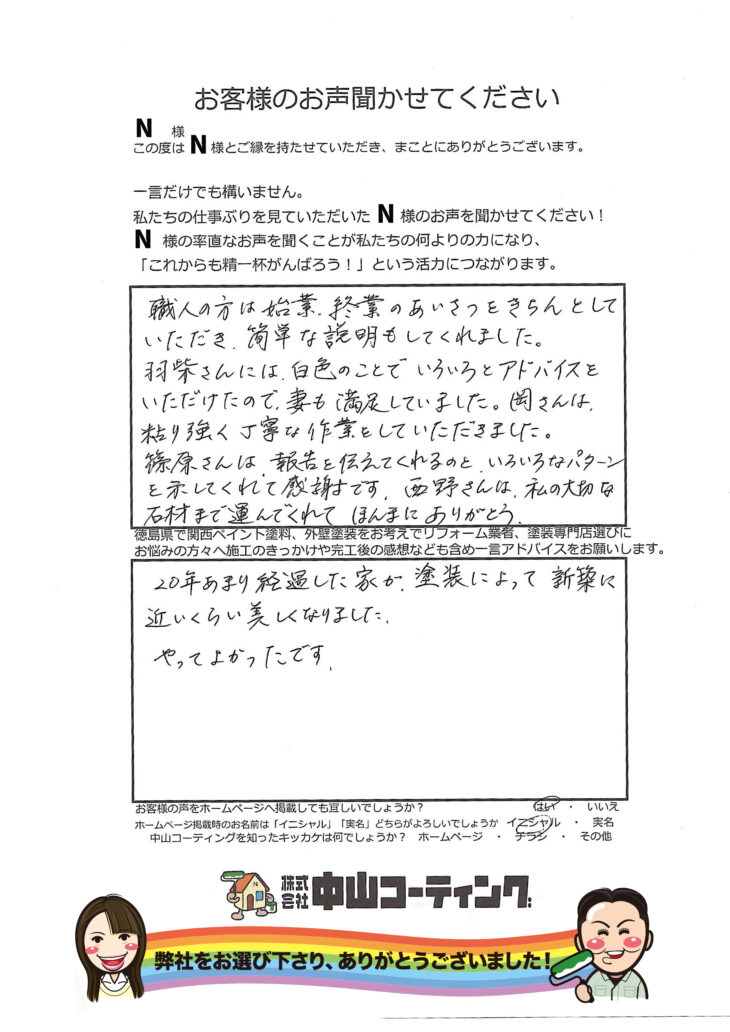 お客様のお声聞かせてください
N 様
この度は N 様とご縁を持たせていただき、まことにありがとうございます。
一言だけでも構いません。
私たちの仕事ぶりを見ていただいた N 様のお声を聞かせてください！
N 様の率直なお声を聞くことが私たちの何よりの力になり、
「これからも精一杯がんばろう！」という活力につながります。
職人の方は始業、終業のあいさつをきちんとして
いただき、簡単な説明もしてくれました。
羽柴さんには、白色のことでいろいろとアドバイスを
いただけたので、妻も満足していました。岡さんは、
粘り強く丁寧な作業をしていただきました。
篠原さんは、報告を伝えてくれるのと、いろいろなパターン
を示してくれて感謝です。西野さんは、私の大切な
石材まで運んでくれてほんまにありがとう。
徳島県で関西ペイント塗料、外壁塗装をお考えでリフォーム業者、塗装専門店選びに
お悩みの方々へ施工のきっかけや完工後の感想なども含め一言アドバイスをお願いします。
20年あまり経過した家が、塗装によって新築に
近いくらい美しくなりました。
やってよかったです。
お客様の声をホームページへ掲載しても宜しいでしょうか？ はい ・ いいえ
ホームページ掲載時のお名前は「イニシャル」「実名」どちらがよろしいでしょうか イニシャル ・ 実名
中山コーティングを知ったキッカケは何でしょうか？ ホームページ ・ チラシ ・ その他
株式会社 中山コーティング
弊社をお選び下さり、ありがとうございました！